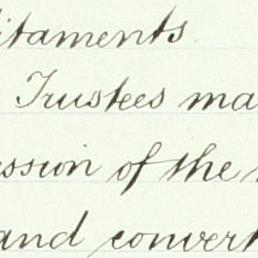 itaments
Trustees ma
ession of the
and convert